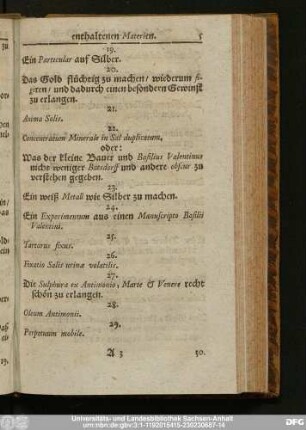 enthaltenen Materien. 5
19.
Ein Particular auf Silber.
20.
Das Gold flüchtig zu machen/ wiederum fi-
giren/ und dadurch einen besondern Gewinst
zu erlangen.
21.
Anima Solis.
22.
Concentratum Minerale in Sal duplicatum,
oder:
Was der kleine Bauer und Basilius Valentinus
nicht weniger Batsdorff und andere obscur zu
verstehen gegeben.
23.
Ein weiß Metall wie Silber zu machen.
24.
Ein Experimentum aus einen Manuscripto Basilii
Valentini.
25.
Tartarus focus.
26.
Fixatio Salis urinæ volatilis.
27.
Die Sulphura ex Antimonio, Marte & Venere recht
schön zu erlangen.
28.
Oleum Antimonii.
29.
Perpetuum mobile.
A 3 30.
Universitäts- und Landesbibliothek Sachsen-Anhalt
urn:nbn:de:gbv:3:1-1192015415-230230687-14
DFG